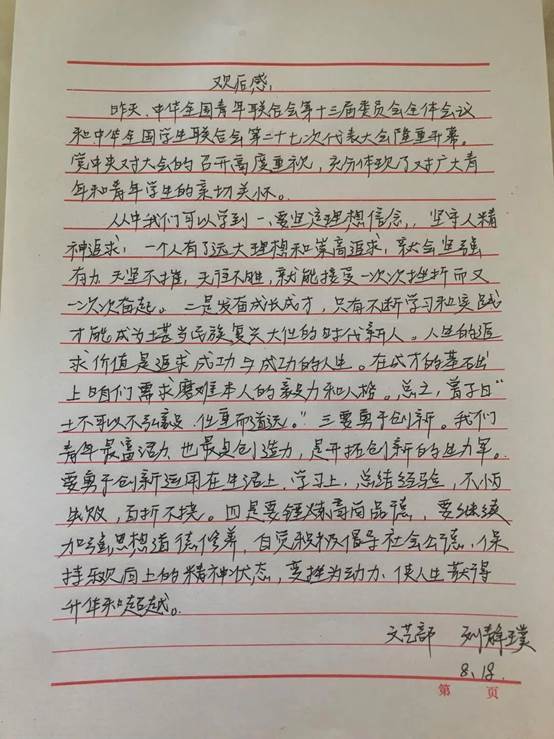 观后感:
昨天,中华全国青年联合会第十三届委员会全体会议
和中华全国学生联合会第二十七次代表大会隆重开幕。
党中央对大会的召开高度重视,充分体现了对广大青
年和青年学生的亲切关怀。
从中我们可以学到一、要坚定理想信念,坚守人精
神追求,一个人有了远大理想和崇高追求,就会坚强
有力,无坚不摧,无往不胜,就能接受一次次挫折而又
一次次奋起。二是发奋成长成才,只有不断学习和实践
才能成为堪当民族复兴大任的时代新人。人生的追
求价值是追求成功与成功的人生。在成才的基础
上咱们需求磨难本人的毅力和人格。总之,曾子曰"
士不可以不弘毅,任重而道远。"三要勇于创新。我们
青年最富活力,也最具创造力,是开拓创新的生力军。
要勇于创新运用在生活上,学习上,总结经验,不怕
失败,百折不挠。四是要锤炼高尚品德,要继续
加强思想道德修养,自觉积极倡导社会公德,保
持乐观向上的精神状态,变挫为动力,使人生获得
升华和超越。
文艺部 刘静璞
8.18.
第 页